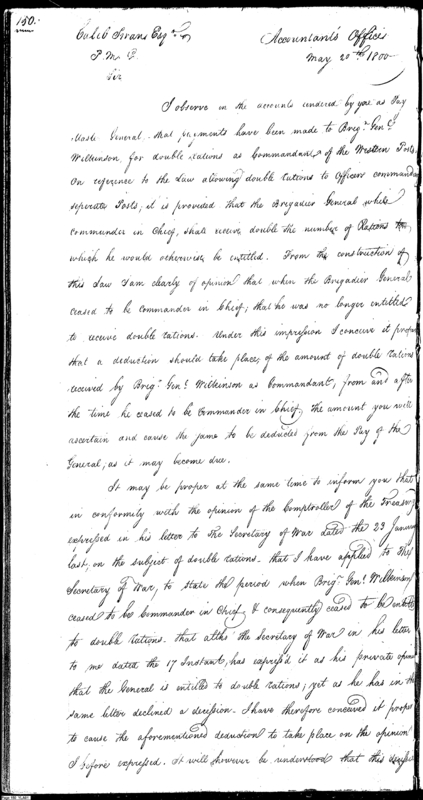 150.
Caleb Swan Esqr
Accountant's Office
P. M. G.
May 20th 1800
Sir
I observe in the accounts rendered by you as Pay
Master General, that payments have been made to Brigr. Genl.
Wilkinson, for double rations as Commandant of the Western Posts.
On reference to the Law allowing double rations to Officers commanding
seperate Posts; it is provided that the Brigadier General while
commander in Chief, shall receive double the number of Rations to
which he would otherwise be entitled. From the construction of
this Law I am clearly of opinion that when the Brigadier General
ceased to be commander in Chief; that he was no longer entitled
to receive double rations. Under this impression I conceive it proper
that a deduction should take place, of the amount of double rations
received by Brigr. Genl. Wilkinson as Commandant, from and after
the time he ceased to be Commander in Chief, the amount you will
ascertain and cause the same to be deducted from the Pay of the
General, as it may become due.
It may be proper at the same time to inform you that
in conformity with the opinion of the Comptroller of the Treasury
expressed in his letter to The Secretary of War dated the 23 January
last, on the subject of double rations. that I have applied to The
Secretary of War, to state the period when Brigr. Genl. Wilkinson
ceased to be Commander in Chief & consequently ceased to be entitled
to double rations. that altho the Secretary of War in his letter
to me dated the 17 Instant, has express'd it as his private opinion
that the General is entitled to double rations; yet as he has in the
same letter declined a decission. I have therefore conceived it proper
to cause the aforementioned deduction to take place on the opinion
I before expressed. it will however be understood that this